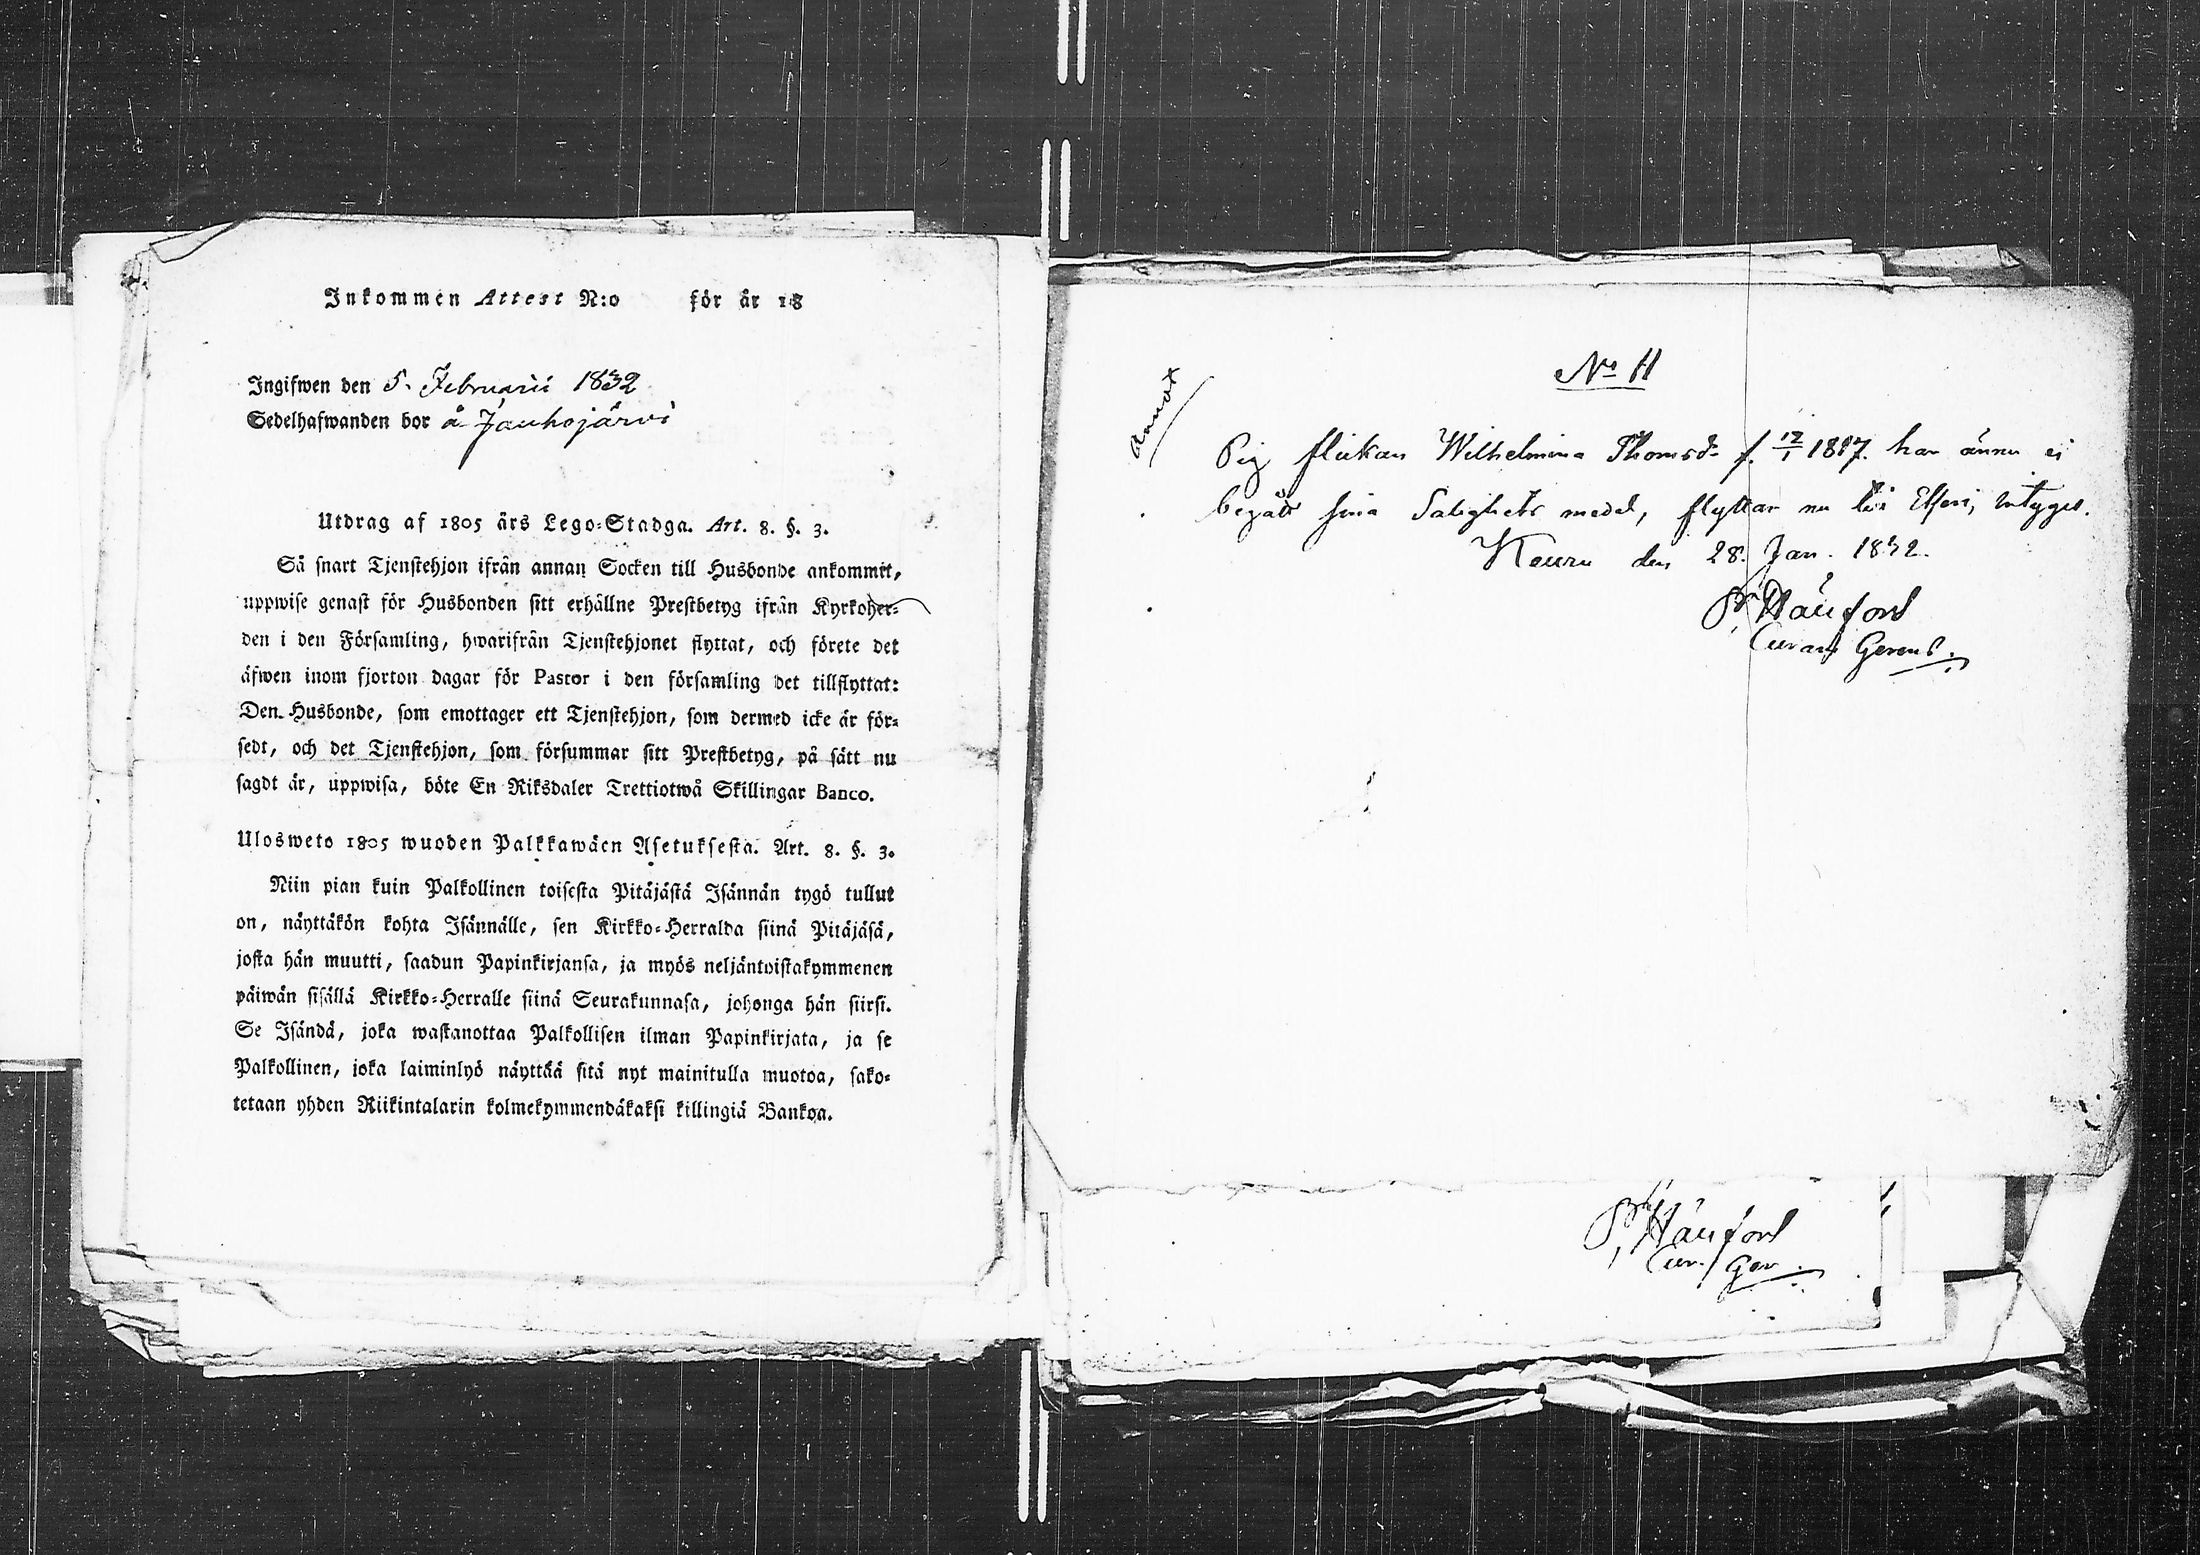 Inkommen Attest N:o för år 18
Ingifwen den 5. Februarii 1832
Sedelhafwanden bor å Jauhojärvi
Utdrag af 1805 års Lego-Stadga. Art. 8. §. 3.
Så snart Tjenstehjon ifrån annan Socken till Husbonde ankommit,
uppwise genast för Husbonden sitt erhållne Prestbetyg ifrån Kyrkoher-
den i den Församling, hwarifrån Tjenstehjonet flyttat, och förete det
äfwen inom fjorton dagar för Pastor i den församling det tillflyttat:
Den Husbonde, som emottager ett Tjenstehjon, som dermed icke är för-
sedt, och det Tjenstehjon, som försummar sitt Prestbetyg, på sätt nu
sagdt är, uppwisa, böte En Riksdaler Trettiotwå Skillingar Banco.
Ulosweto 1805 wuoden Palkkawäen Asetuksesta. Art. 8. §. 3.
Niin pian kuin Palkollinen toisesta Pitäjästä Isännän tygö tullut
on, näyttäkön kohta Isännälle, sen Kirkko-Herralda siinä Pitäjäsä,
josta hän muutti, saadun Papinkirjansa, ja myös neljäntoistakymmenen
päiwän sisällä Kirkko-Herralle siinä Seurakunnasa, johonga hän siirsi.
Se Isändä, joka wastanottaa Palkollisen ilman Papinkirjata, ja se
Palkollinen, joka laiminlyö näyttää sitä nyt mainitulla muotoa, sako-
tetaan yhden Riikintalarin kolmekymmendäkaksi killingiä Bankoa.
No 11
Annot
Pig flickan Wilhelmina Thomsd. f. 12/1 1817. har ännu ei
begått sina Salighets medel, flyttar nu till Etseri, intygas.
Keuru den 28. Jan. 1832.
Pr Hällfors
Curam Gerens.
Pr Hällfors
Cur. Ger.